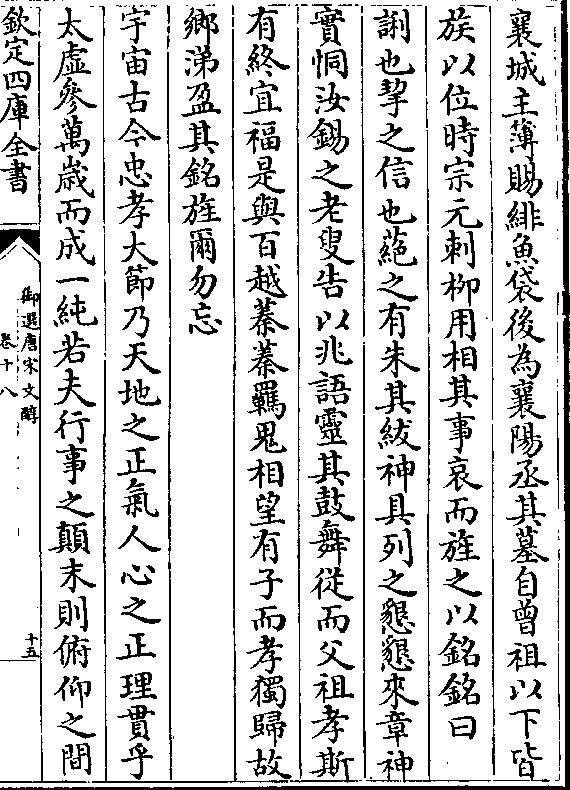 襄城主薄賜緋魚袋後為襄陽丞其墓自曾祖以下皆
族以位時宗元刺柳用相其事哀而旌之以銘銘曰
誗也挈之信也蕝之有朱其紱神具列之懇懇來章神
實恫汝錫之老叟告以兆語靈其鼓舞從而父祖孝斯
有終宜福是與百越蓁蓁羈鬼相望有子而孝獨歸故
鄉涕盈其銘旌爾勿忘
宇宙古今忠孝大節乃天地之正氣人心之正理貫乎
太虛參萬歲而成一純若夫行事之顛末則俯仰之間
欽定四庫全書
御選唐宋文醇
卷十八
十五